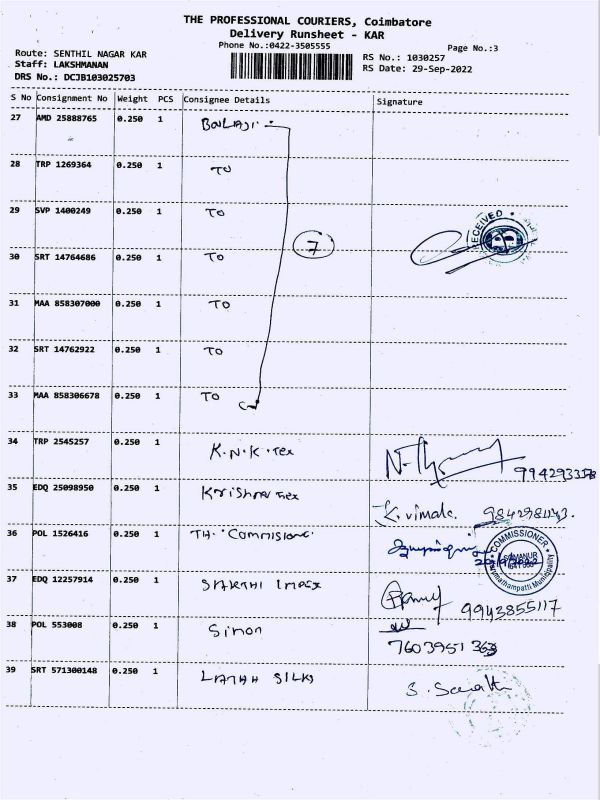 THE PROFESSIONAL COURIERS, Coimbatore
Delivery Runsheet - KAR
Phone No.:0422-3505555
Page No.:3
Route: SENTHIL NAGAR KAR
Staff: LAKSHMANAN
DRS No.: DCJB103025703
RS No.: 1030257
RS Date: 29-Sep-2022
S No Consignment No Weight PCS Consignee Details Signature
27 AMD 25888765 0.250 1
28 TRP 1269364 0.250 1 TO
29 SVP 1400249 0.250 1 TO RECEIVED
30 SRT 14764686 0.250 1 TO 7
31 MAA 858307000 0.250 1 TO
32 SRT 14762922 0.250 1 TO
33 MAA 858306678 0.250 1 TO
34 TRP 2545257 0.250 1 K.N.K. Tex
35 EDQ 25098950 0.250 1 Krishna Tex K. Vimala.
36 POL 1526416 0.250 1 TH. COMMISSIONER
37 EDQ 12257914 0.250 1 SHAKTHI 9943855117
38 POL 553008 0.250 1 Simon
39 SRT 571300148 0.250 1 SILKS S.